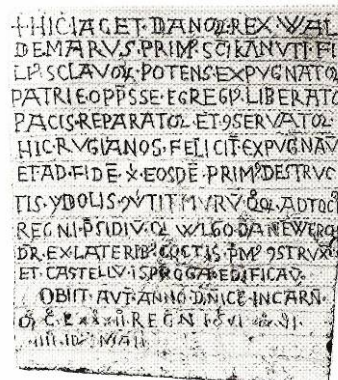 +HICIACET·DANOꝜ·REX·WAL
DEMARVS·PRIM᷒·SCI KANVTI·FI
LI᷒·SCLAVOꝜ·POTENS·EXPVGNATO
PATRIE·OPP̄SSE·EGREGI᷒·LIBERATO
PACIS·REPARATOꝛ·ET·ꝯSERVATOꝛ
HIC·RVGIANOS·FELICIT̄·EXPVGNAV
ET·AD·FIDĒ·X̄·EOSDĒ·PRIM᷒·DESTRVC
TIS·YDOLIS·ꝯV̄TIT·MVRV̄·ADTOCI᷒
REGNI·P̄SIDIV̄·WLGO·DANEWERC
DR·EX·LATERIB᷒·COCTIS·P̄M᷒·ꝯSTRVX
ET·CASTELLV̄·I·SPROGA·EDIFICAV̄
OBIIT·AVT̄·ANNO·D̄NICE·INCARN̄
REGNI
IIII·ID᷒·MAII